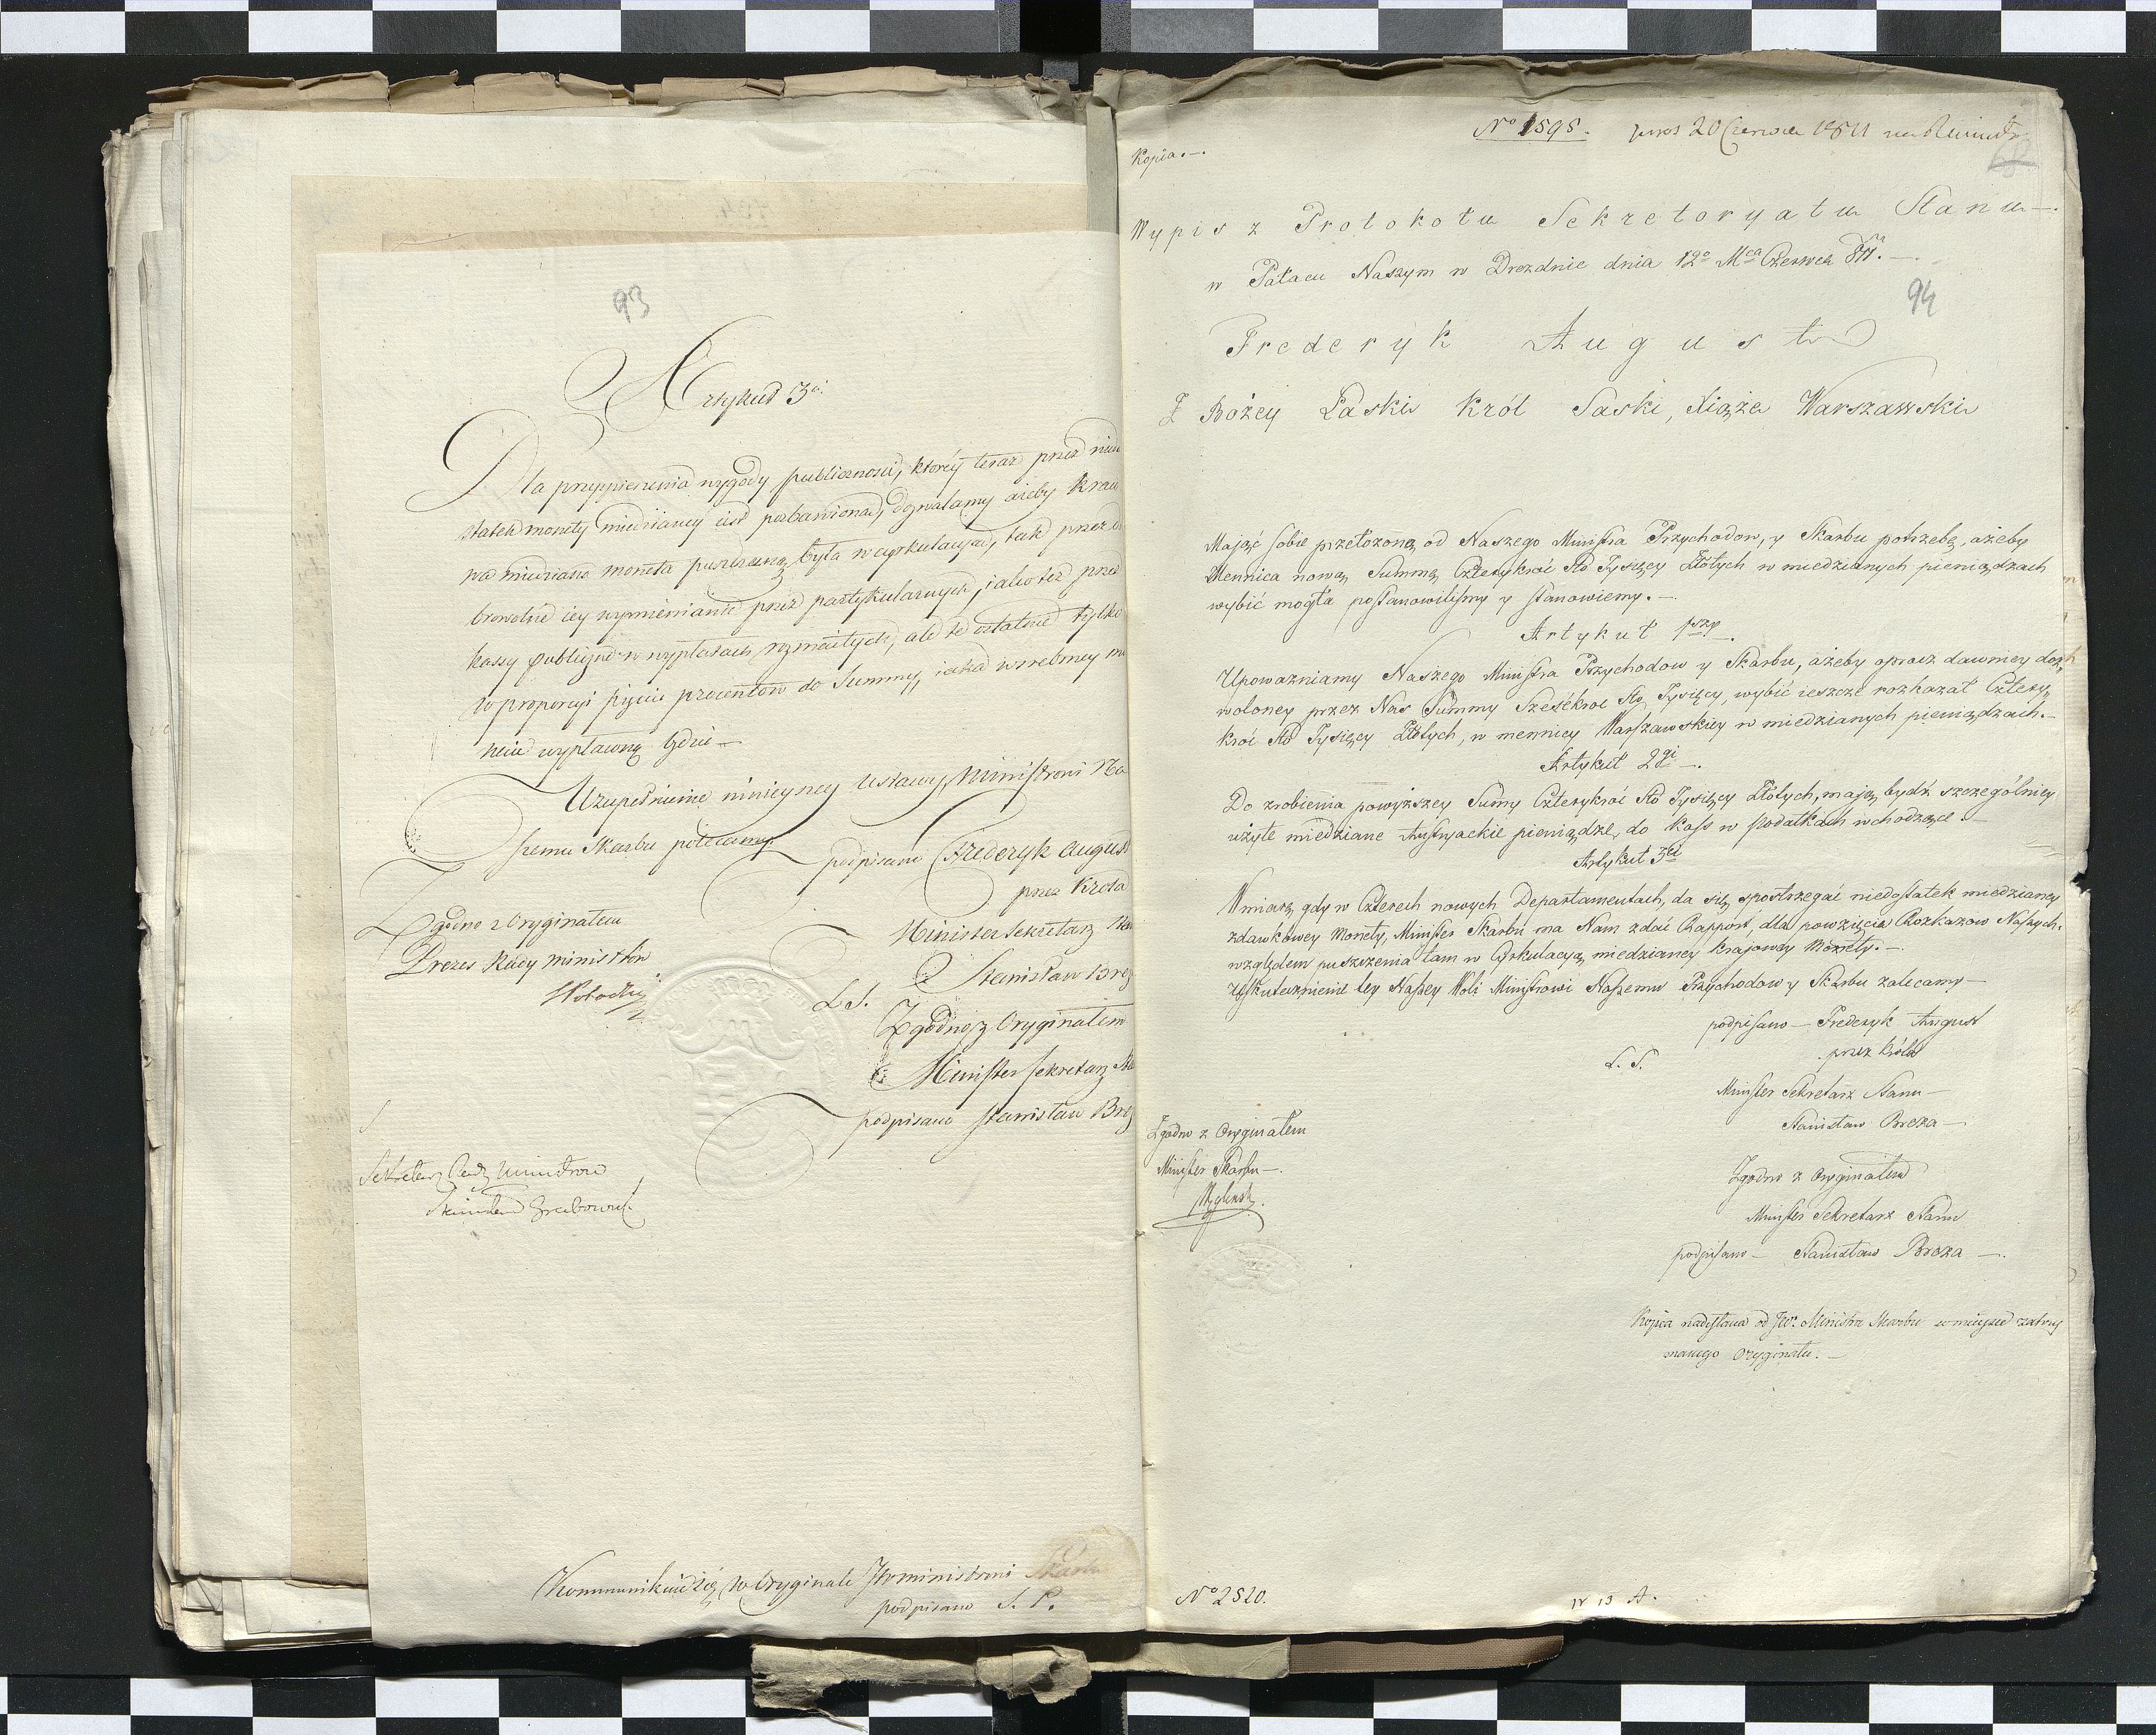 93
Artykuł 3ci
Dla przyspieszenia wygody publiczności, którey teraz przez nied
statek monety miedzianey iest pozbawiona, dozwalamy ażeby krajo
wa miedziana moneta puszczoną była w cyrkulacyą, tak przez do
browolne iey wymienianie przez partykularnych, iako też przez
kassy publiczne w wypłatach rozmaitych, ale te ostatnie tylko
w proporcyi pięciu procentów do Summy, iaka w srebrney mo
necie wypłaconą będzie
Uzupełnienie ninieyszey Ustawy, Ministrowi Na
szemu Skarbu polecamy
podpisano Fryderyk August
przez Króla
Minister Sekretarz
Stanisław Brez
L. S.
Zgodno z Oryginałem
Minister Sekretarz Sta
podpisano Stanisław Brez
Zgodno z Oryginałem
Prezes Rady Ministrów
Sekretarz Rady Ministrów
Kommunikuie się w Oryginale JWMinistrowi Skarbu
podpisano S. P.
No 1595. 20 Czerwca 1811
Kopia.—
Wypis z Protokołu Sekretaryatu Stanu—
w Pałacu Naszym w Dreznie dnia 12o Mca Czerwca
94
Frederyk August
Z Bożey Łaski Król Saski, Xiąże Warszawski
Mając sobie przełożoną od Naszego Ministra Przychodow, y Skarbu potrzebę, ażeby
Mennica nową Summę Czterykroć Sto Tysięcy Złotych w miedzianych pieniądzach
wybić mogła postanowiliśmy y stanowiemy.—
Artykuł 1szy.
Upoważniamy Naszego Ministra Przychodow y Skarbu, ażeby oprocz dawniey doz
woloney przez Nas Summy Sześćkroć Sto Tysięcy, wybić ieszcze rozkazał Cztery
kroć Sto Tysięcy Złotych, w mennicy Warszawskiey w miedzianych pieniądzach.—
Artykuł 2gi—.
Do zrobienia powyższey Sumy Czterykroć Sto Tysięcy Złotych, mają bydź szczególniey
użyte miedziane Austryackie pieniądze, do kass w podatkach wchodzące.—
Artykuł 3ci
W miarę gdy w Czterech nowych Departamentach, da się spostrzegać niedostatek miedzianey
zdawkowey Monety, Minister Skarbu ma Nam zdać Rapport, dla powzięcia Rozkazow Naszych,
względem puszczenia tam w Cyrkulacyą miedzianey krajowey Monety.—
Uskutecznienie tey Naszey Woli Ministrowi Naszemu Przychodow y Skarbu zalecamy—
podpisano — Frederyk August
przez Króla
L. S.
Minister Sekretarz Stanu—
Stanisław Breza—
Zgodno z Oryginałem
Minister Skarbu—.
Zgodno z Oryginałem
Minister Sekretarz Stanu
podpisano — Stanisław Breza —.
Kopia nadesłana od JW. Ministra Skarbu w mieysce zatrzy
manego Oryginału.—
No 2520.